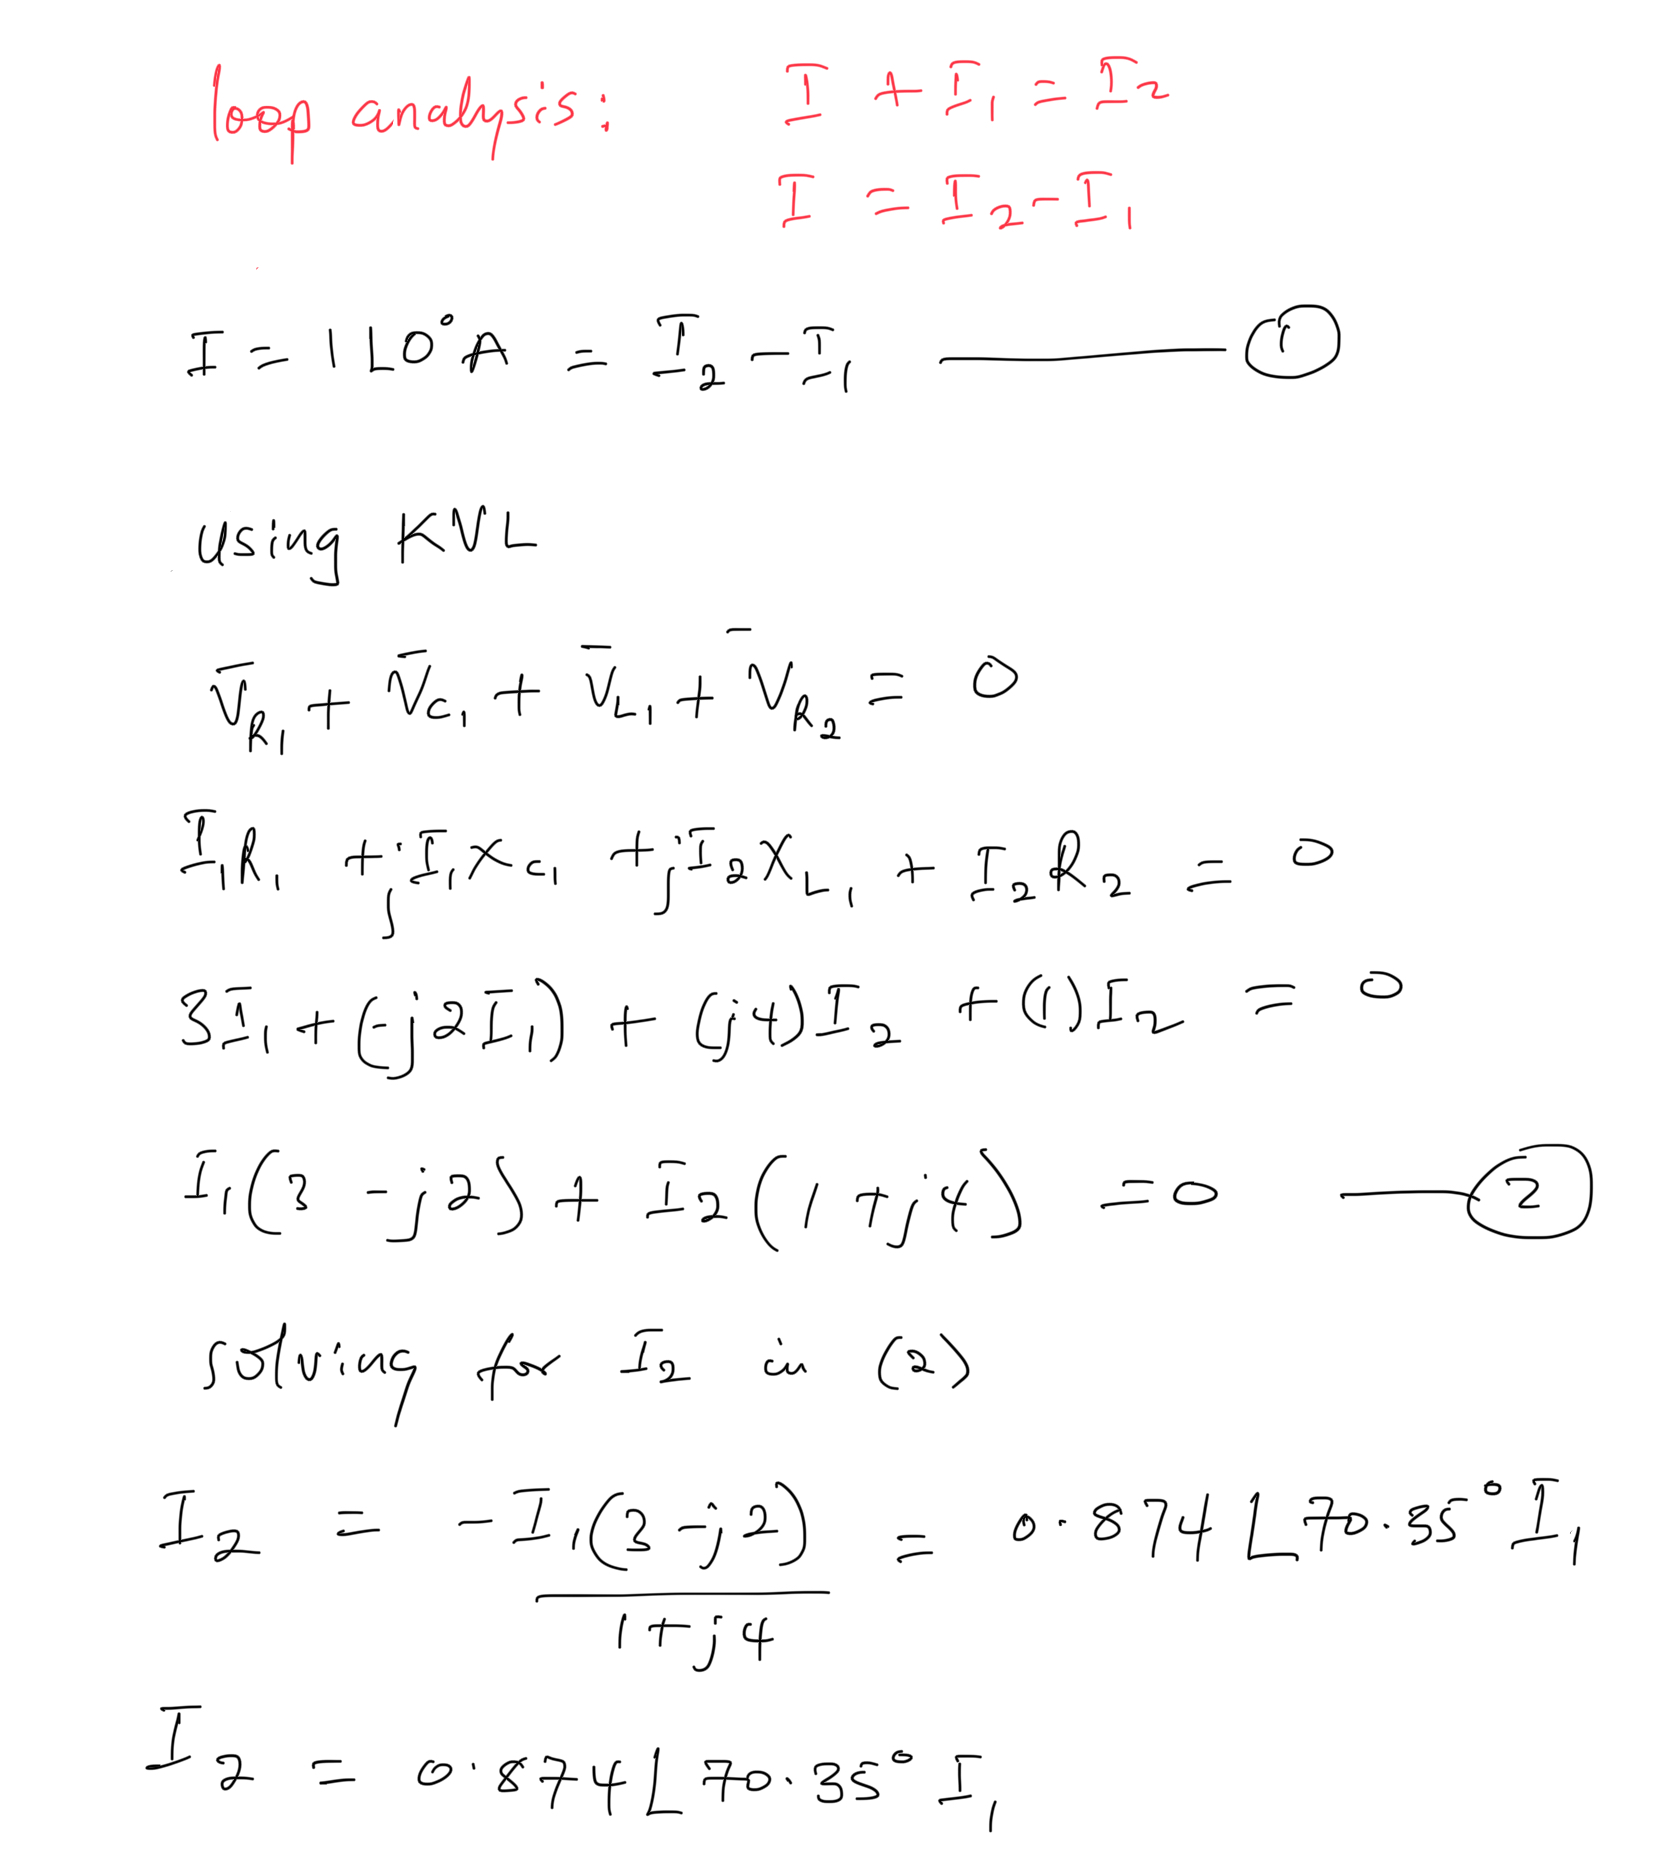 loop analysis: I + I₁ = I₂
I = I₂ - I₁
I = 1∠0° A = I₂ - I₁ ——— ①
Using KVL
V̄_R₁ + V̄_C₁ + V̄_L₁ + V̄_R₂ = 0
I₁R₁ + jI₁X_C₁ + jI₂X_L₁ + I₂R₂ = 0
3I₁ + (-j2I₁) + (j4)I₂ + (1)I₂ = 0
I₁(3 - j2) + I₂(1 + j4) = 0 ——— ②
solving for I₂ in (2)
I₂ = -I₁(3 - j2) / 1 + j4 = 0.874∠70.35° I₁
I₂ = 0.874∠70.35° I₁